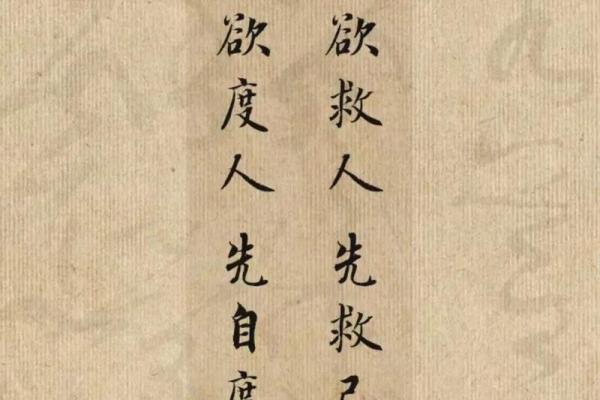 欲救人先救己
欲度人先自度